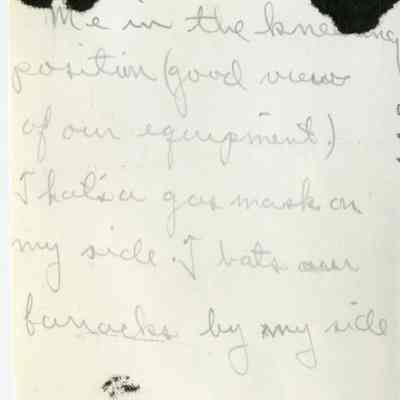 Me in the kneeling
position (good view
of our equipment.)
Thats a gas mask on
my side. Thats our
barracks by my side